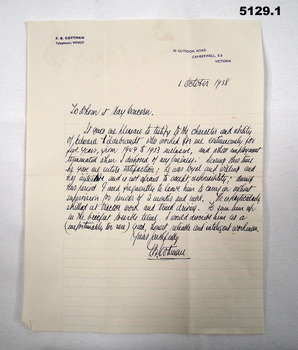 5129.1
F. B. COTTMAN
Telephone: WF
GLYNDON ROAD
CAMBERWELL, E.6
VICTORIA
1 October 1958
To Whom it May Concern.
It gives me pleasure to testify to the character and ability
of Edward who worked for me continuously for
five years, from 1949 to 1953 inclusive, and whose employment
terminated when I disposed of my business. During this time
he gave me entire satisfaction; he was loyal and willing and
very and is not afraid to accept responsibility - during
this period I used frequently to leave him to carry on without
supervision for periods of 2 months and more. He is particularly
skilled at tractor work and truck driving. To sum him up
in the briefest possible terms I would describe him as a
(comfortable for me) good, honest, reliable and intelligent workman.
Yours faithfully
F. B. Cottman